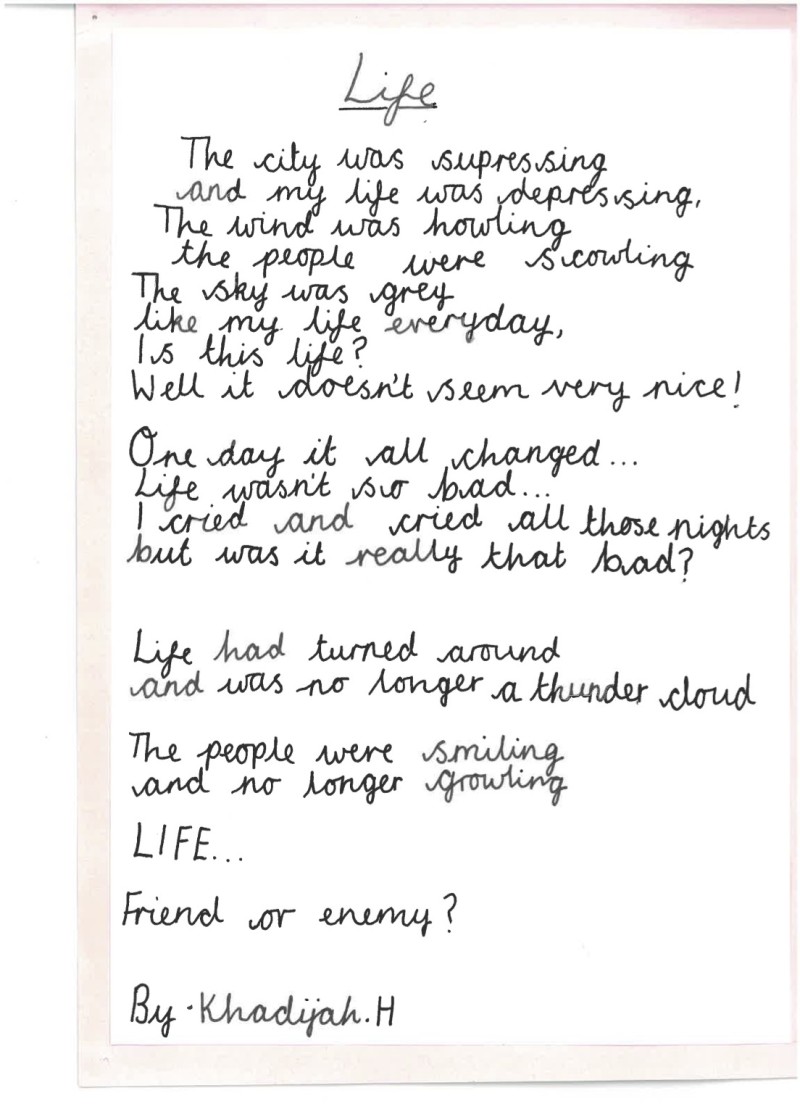 Life
The city was supressing
and my life was depressing,
The wind was howling
the people were scowling
The sky was grey
like my life everyday,
Is this life?
Well it doesn't seem very nice!
One day it all changed...
Life wasn't so bad...
I cried and cried all those nights
but was it really that bad?
Life had turned around
and was no longer a thunder cloud
The people were smiling
and no longer growling
LIFE...
Friend or enemy?
By. Khadijah.H